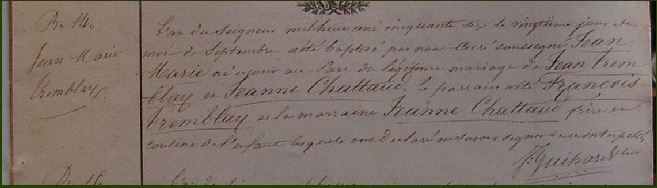 B. 14.
Jean Marie
Tremblay
L'an du Seigneur mil huit cent cinquante dix le vingtième jour de
mois de Septembre a été baptisé par nous Curé soussigné Jean
Marie né ce jour au Parc de légitime mariage de Jean Trem
blay et Jeanne Chattaud. Le parrain a été François
Tremblay et la marraine Jeanne Chattaud frère et
cousine de l'enfant lesquels ont déclaré ne savoir signer de ce interpellés